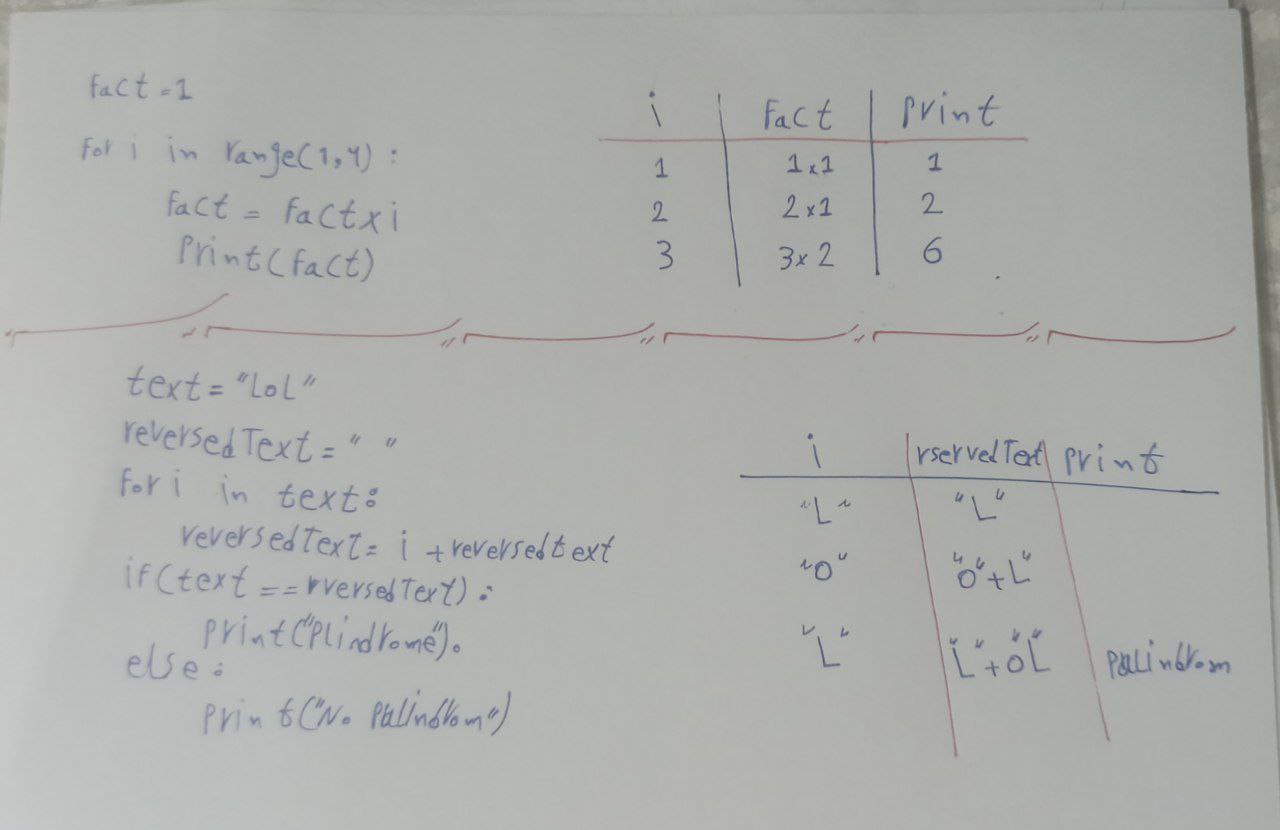 fact = 1
for i in range(1,4) :
fact = fact x i
Print(fact)
i fact print
1 1x1 1
2 2x1 2
3 3x2 6
text = "LoL"
reversedText = " "
for i in text:
reversedText = i + reversedtext
if(text == rversedText) :
print("Plindrome").
else :
print("No Palindrom")
i rservedText print
"L" "L"
"O" "O"+L"
"L" "L"+"OL" Palindrom